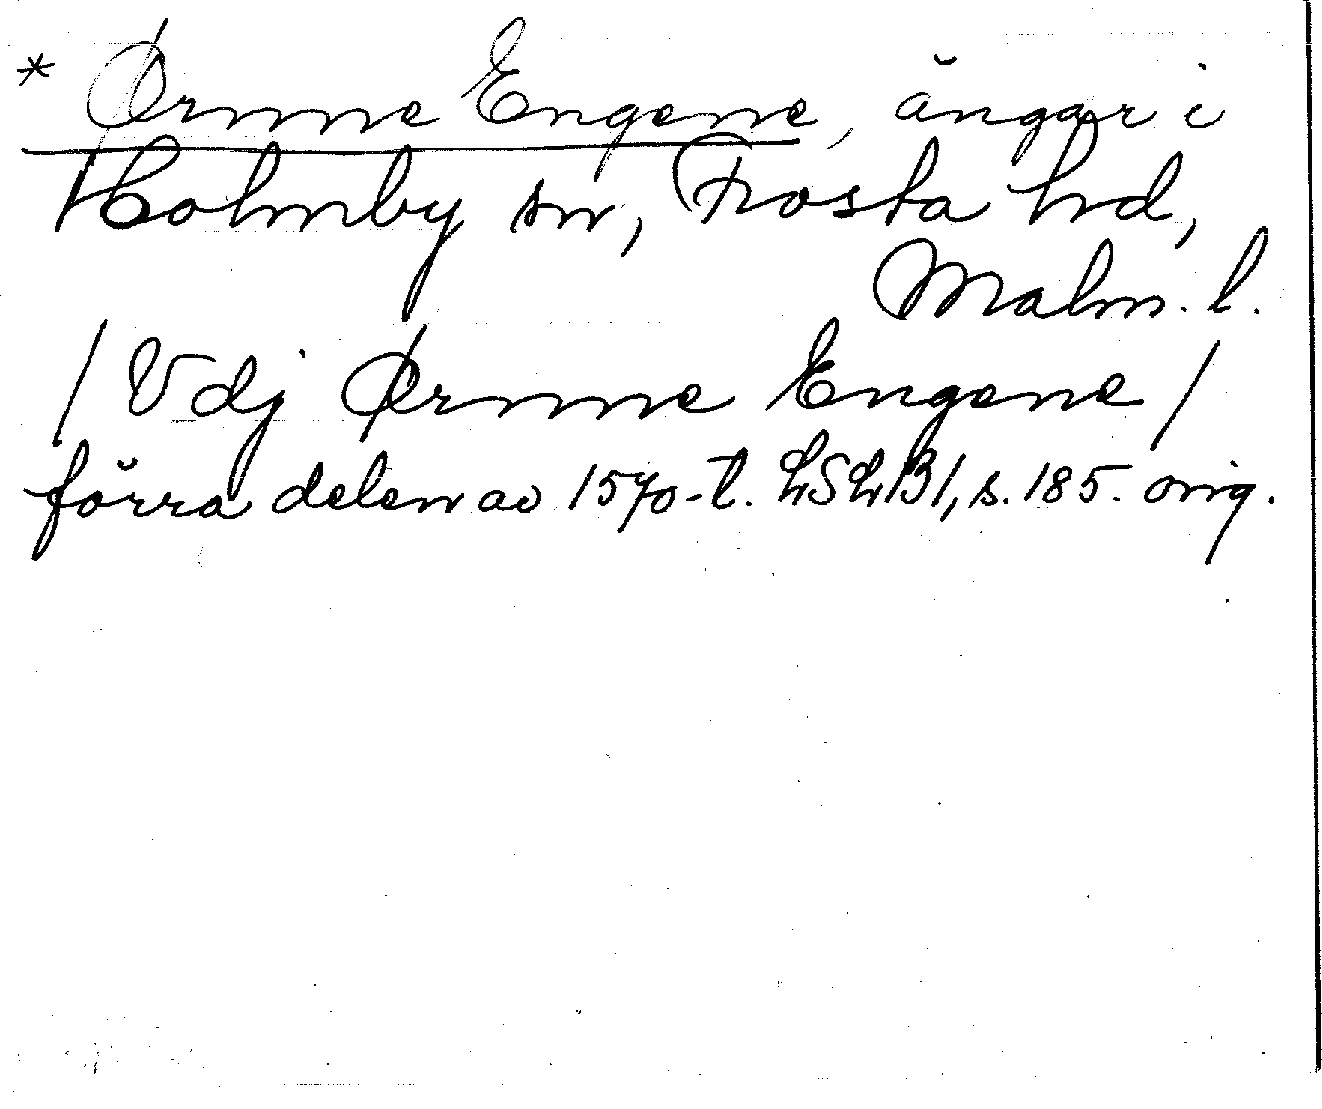 * Ørnne Engene, ängar i
Holmby sn, Frosta hd,
Malm. l.
/Vdj Ørnne Engene/
förra delen av 1570-t. LSLB1, s. 185. orig.